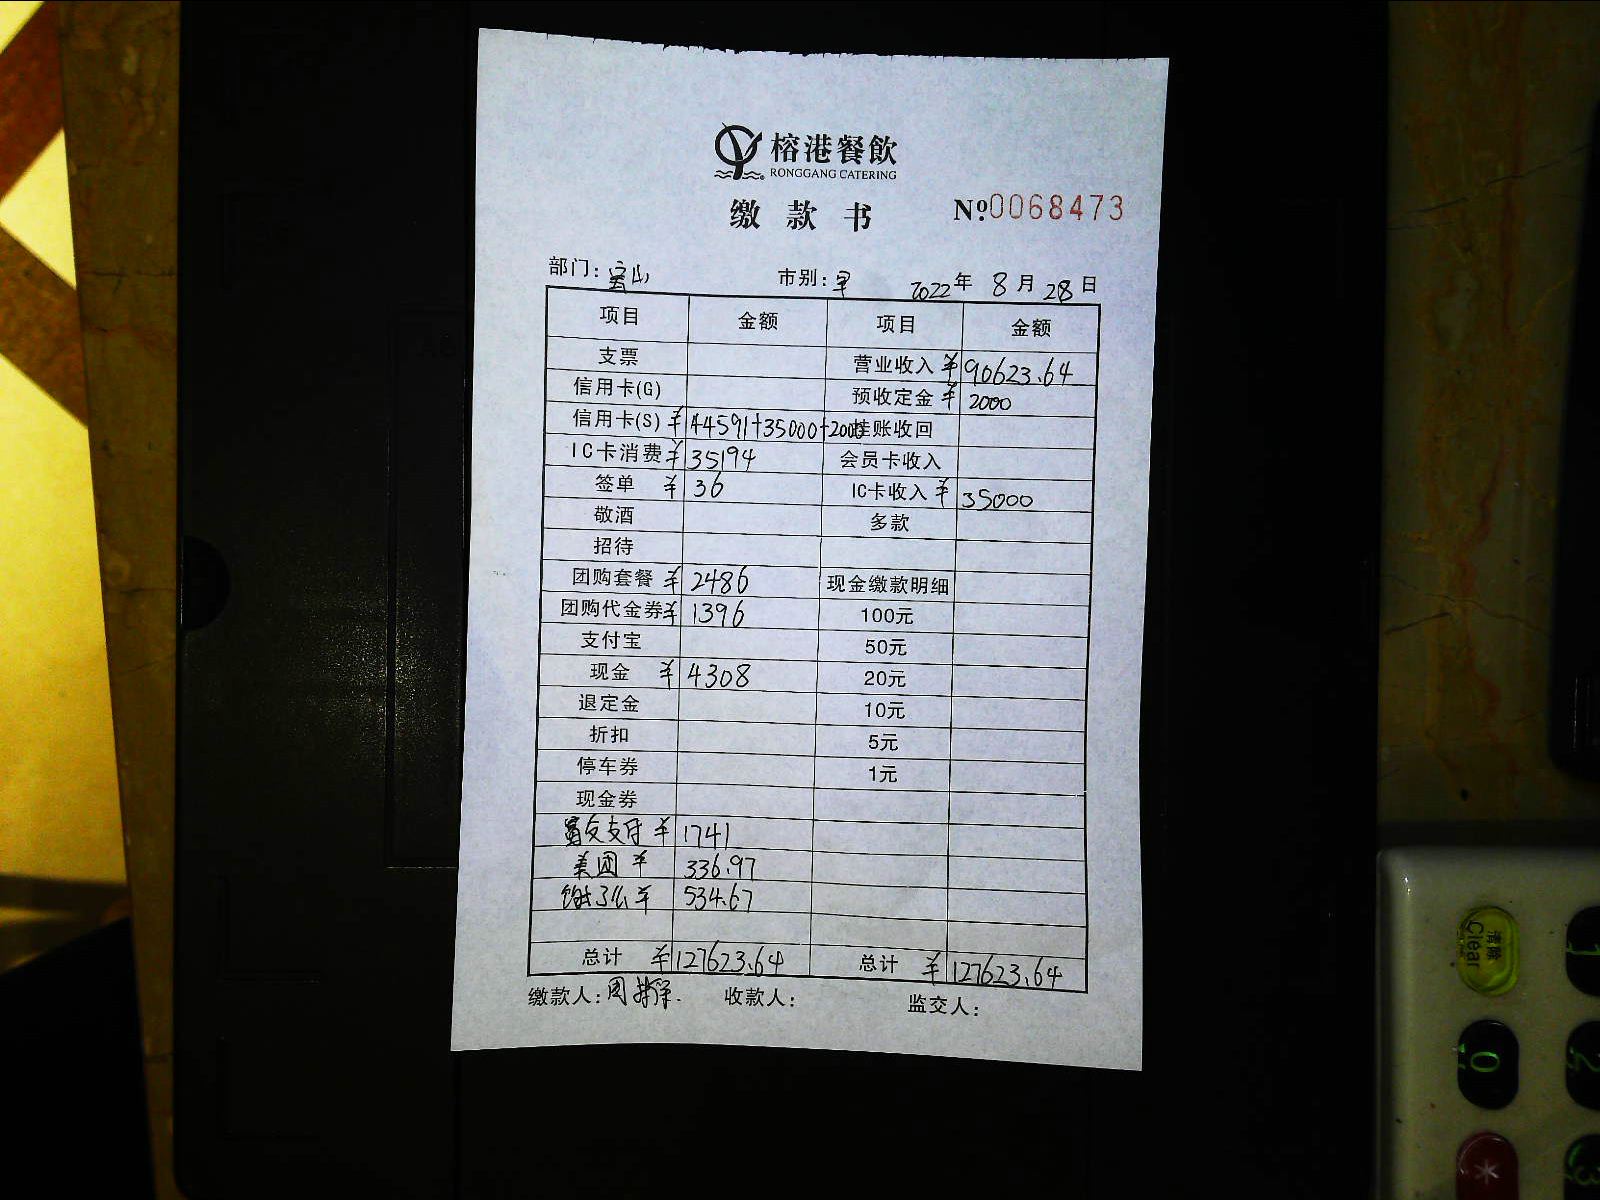 榕港餐飲
RONGGANG CATERING
缴款书 №0068473
部门: 宝山 市别: 早 2022年 8月 28日
项目 金额 项目 金额
支票 营业收入 ¥ 90623.64
信用卡(G) 预收定金 ¥ 2000
信用卡(S) ¥ 44591+35000+2000 挂账收回
IC卡消费 ¥ 35194 会员卡收入
签单 ¥ 36 IC卡收入 ¥ 35000
敬酒 多款
招待
团购套餐 ¥ 2486 现金缴款明细
团购代金券 ¥ 1396 100元
支付宝 50元
现金 ¥ 4308 20元
退定金 10元
折扣 5元
停车券 1元
现金券
支付 ¥ 1741
美团 ¥ 336.97
饿了么 ¥ 534.67
总计 ¥ 127623.64 总计 ¥ 127623.64
缴款人: 周 收款人: 监交人:
清除
Clear
0
1
2
3
*